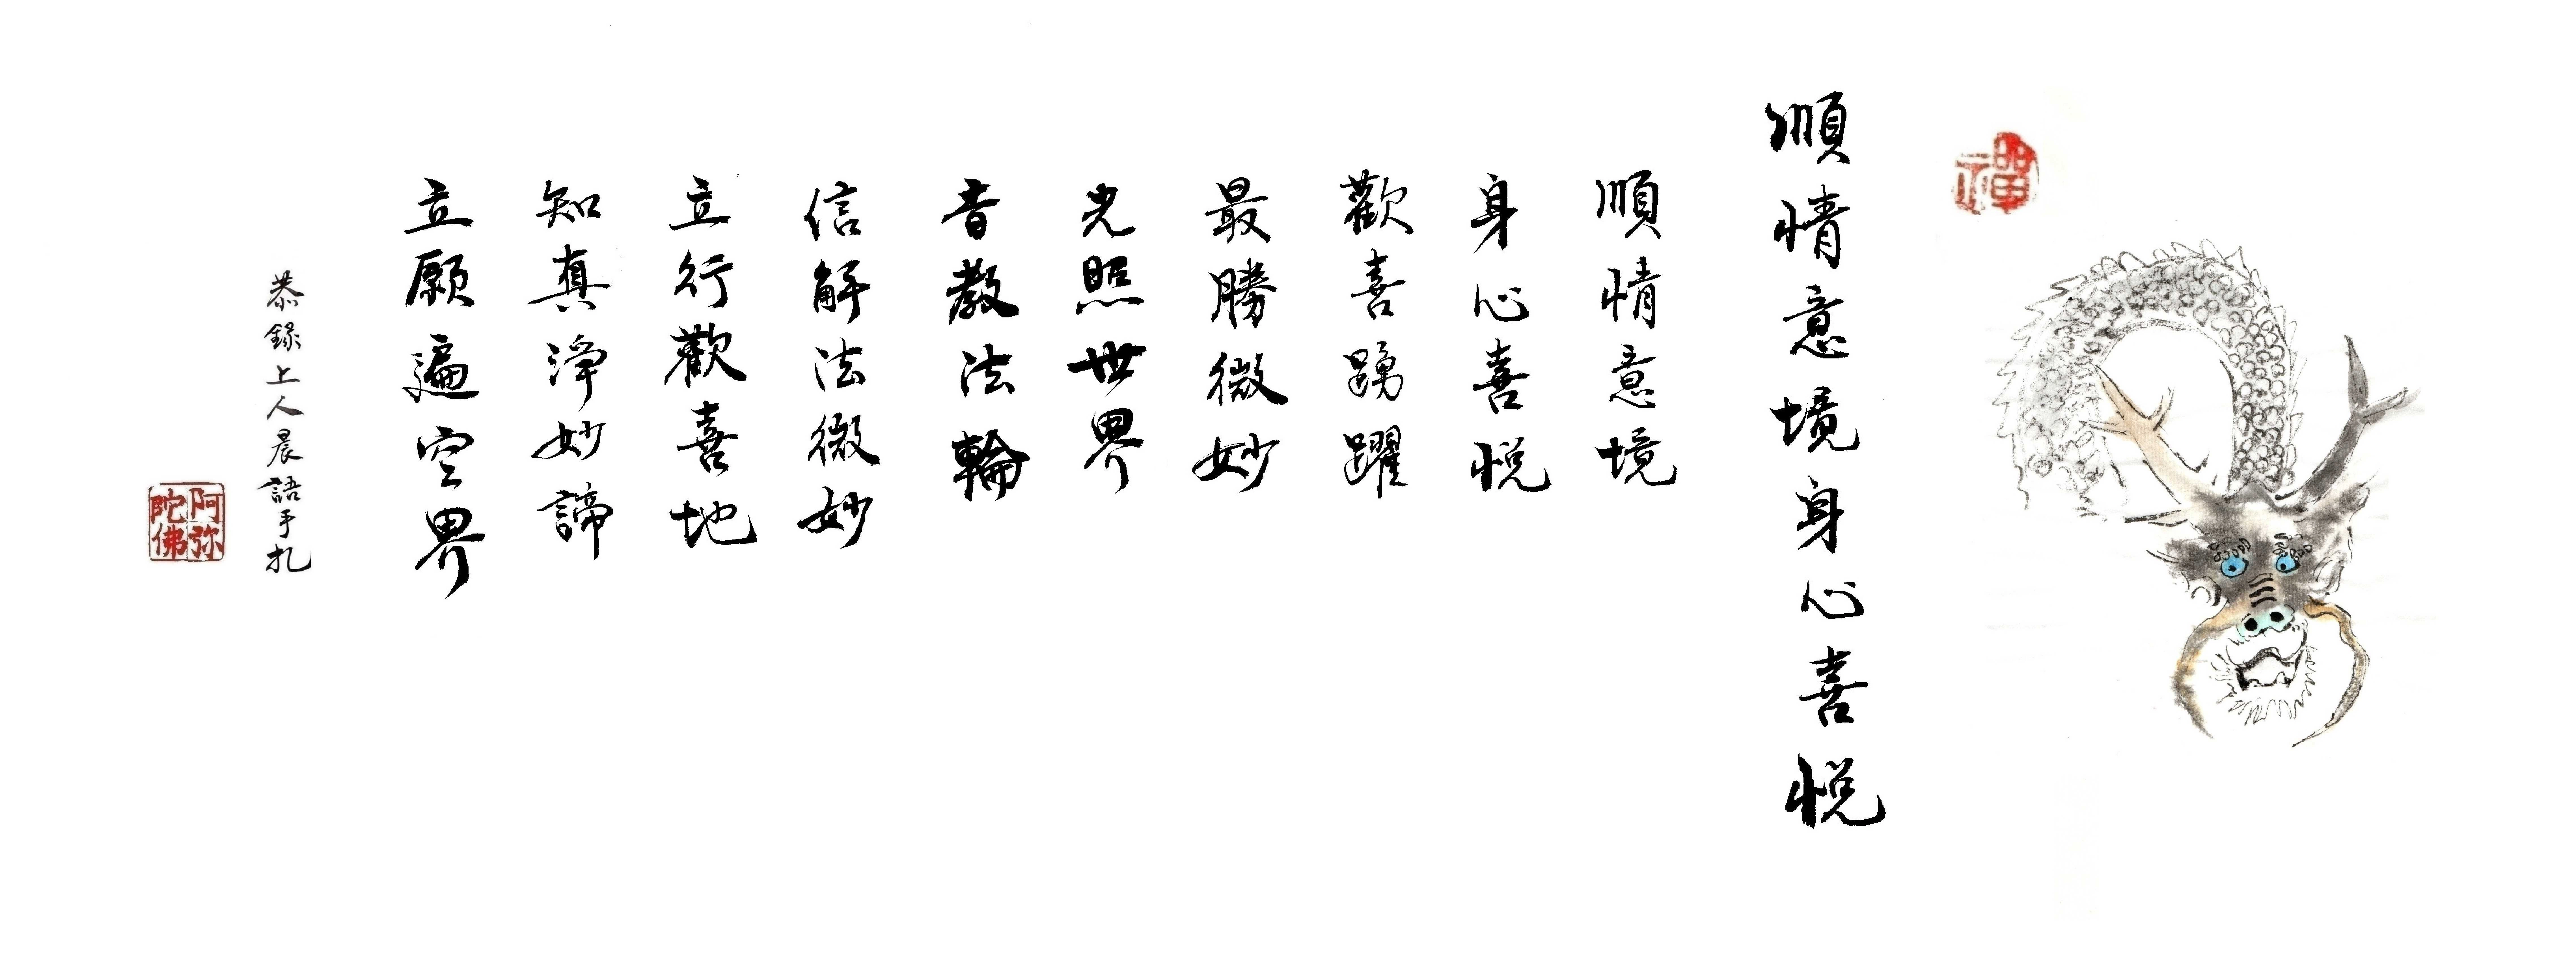 禪
順情意境身心喜悦
順情意境
身心喜悦
歡喜踴躍
最勝微妙
光照世界
音教法輪
信解法微妙
立行歡喜地
知真淨妙諦
立願遍空界
恭錄上人晨語手扎
阿弥陀佛